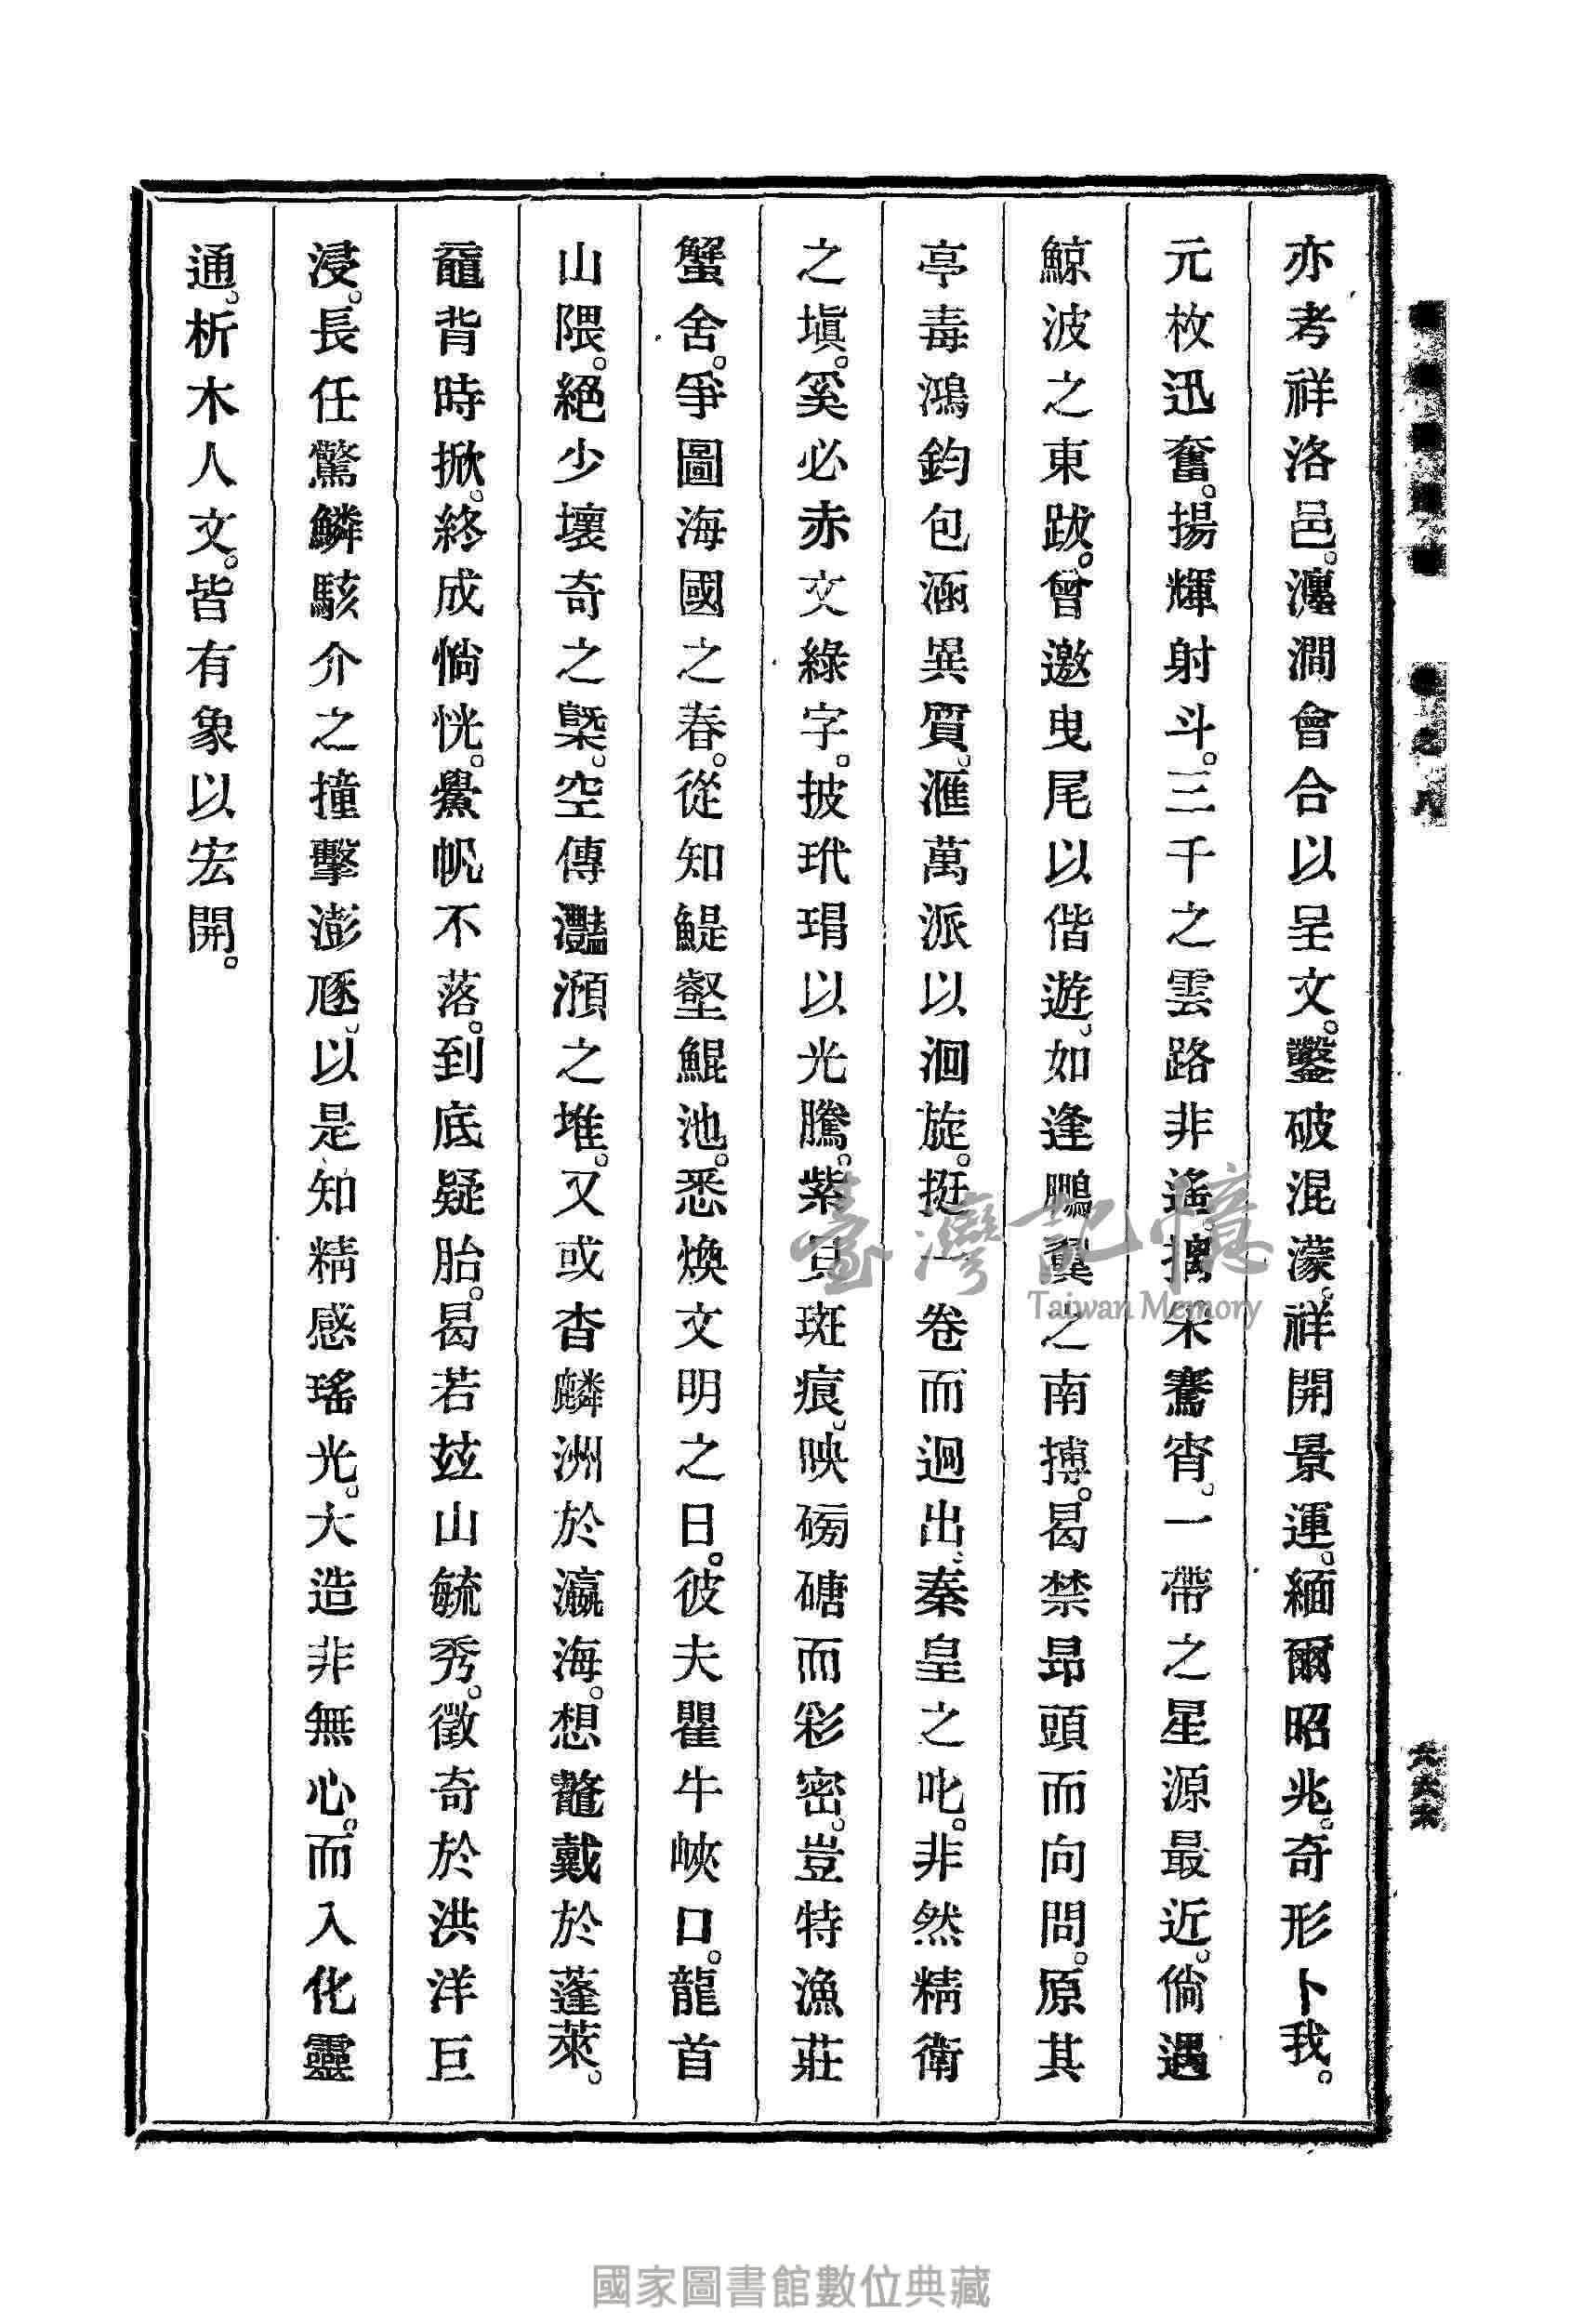 亦考祥洛邑。瀍澗會合以呈文。鑿破混濛。祥開景運。緬爾昭兆。奇形卜我。
元枚迅奮。揚輝射斗。三千之雲路非遙。摛朵騫霄。一帶之星源最近。倘遇
鯨波之東跋。曾邀曳尾以偕遊。如逢鵬翼之南搏。曷禁昂頭而向問。原其
亭毒鴻鈞包涵異質。滙萬派以洄旋。挺一卷而迥出。秦皇之叱。非然精衛
之塡。奚必赤文綠字。披玳瑁以光騰。紫貝斑痕。映磅磄而彩密。豈特漁莊
蟹舍。爭圖海國之春。從知鯷壑鯤池。悉煥文明之日。彼夫瞿牛峽口。龍首
山隈。絕少壞奇之槩。空傳灩澦之堆。又或杳麟洲於瀛海。想鼇戴於蓬萊。
黿背時掀。終成惝恍。鱟帆不落。到底疑胎。曷若玆山毓秀。徵奇於洪洋巨
浸。長任驚鱗駭介之撞擊澎豗。以是知精感瑤光。大造非無心。而入化靈
通。析木人文。皆有象以宏開。
卷之八
六六六
臺灣記憶
Taiwan Memory
國家圖書館數位典藏